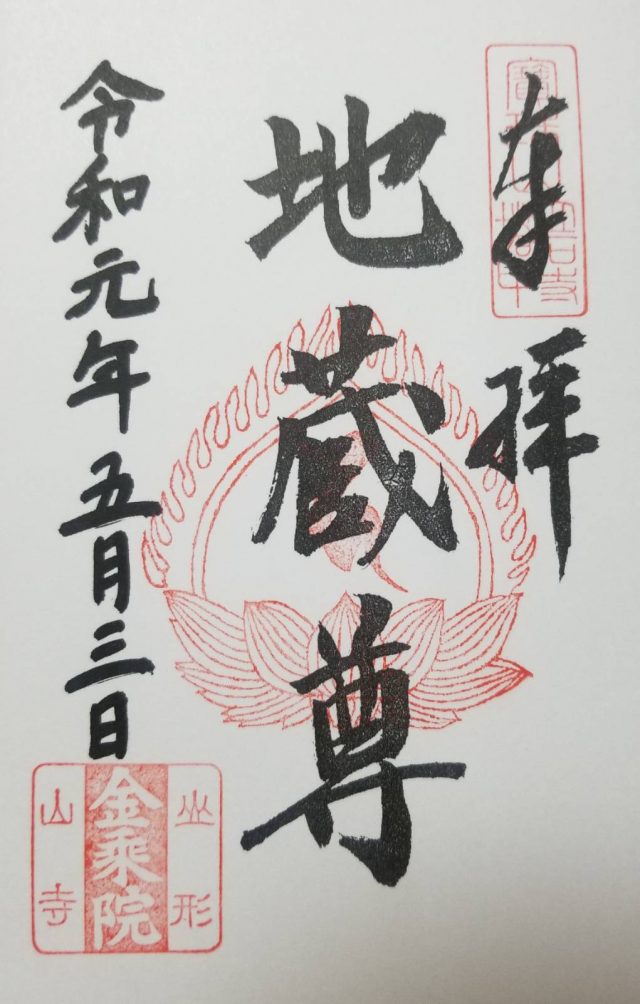 奉拝
地蔵尊
令和元年五月三日
山形
金乗院
山寺